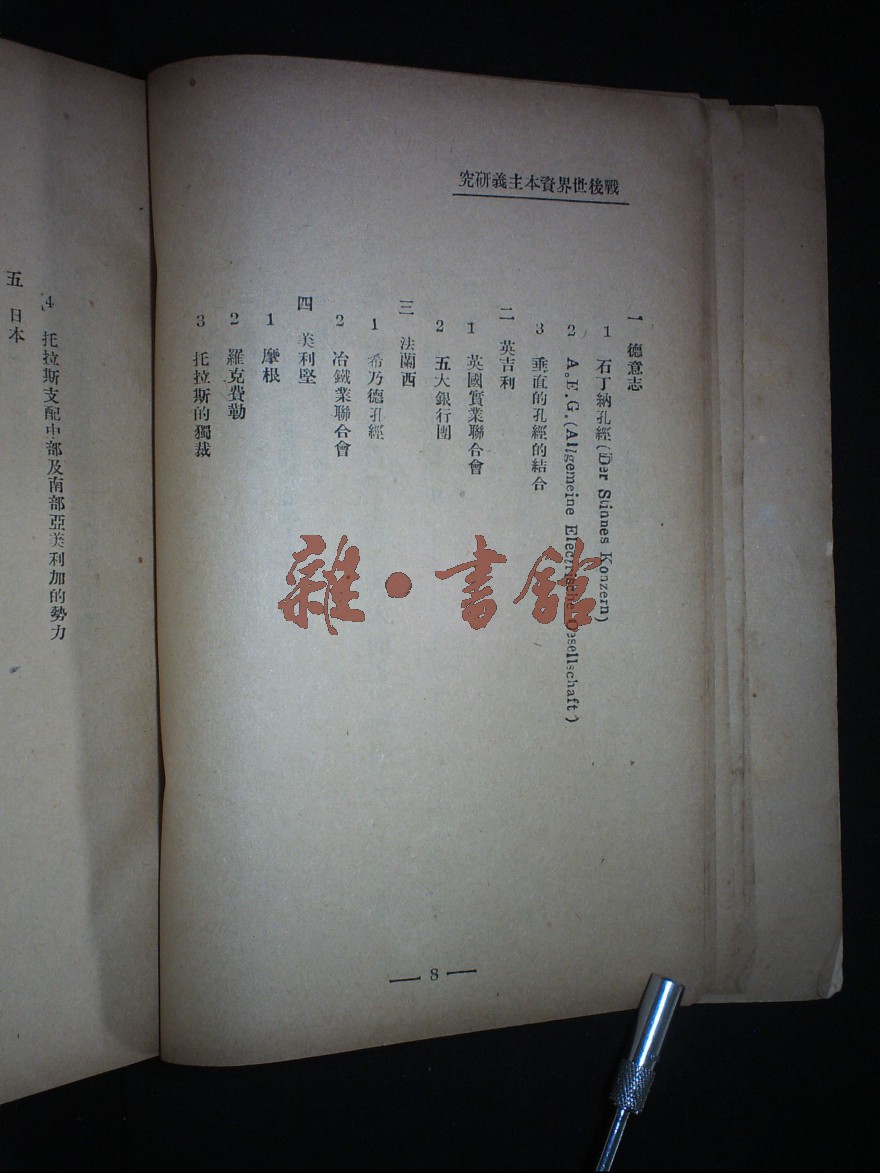 究研義主本資界世後戰
一 德意志
1 石丁納孔經(Der Stinnes Konzern)
2 A.E.G.(Allgemeine Electrische Gesellschaft)
3 垂直的孔經的結合
二 英吉利
1 英國實業聯合會
2 五大銀行團
三 法蘭西
1 希乃德孔經
2 冶鐵業聯合會
四 美利堅
1 摩根
2 羅克費勒
3 托拉斯的獨裁
— 8 —
4 托拉斯支配中部及南部亞美利加的勢力
五 日本
雜·書館